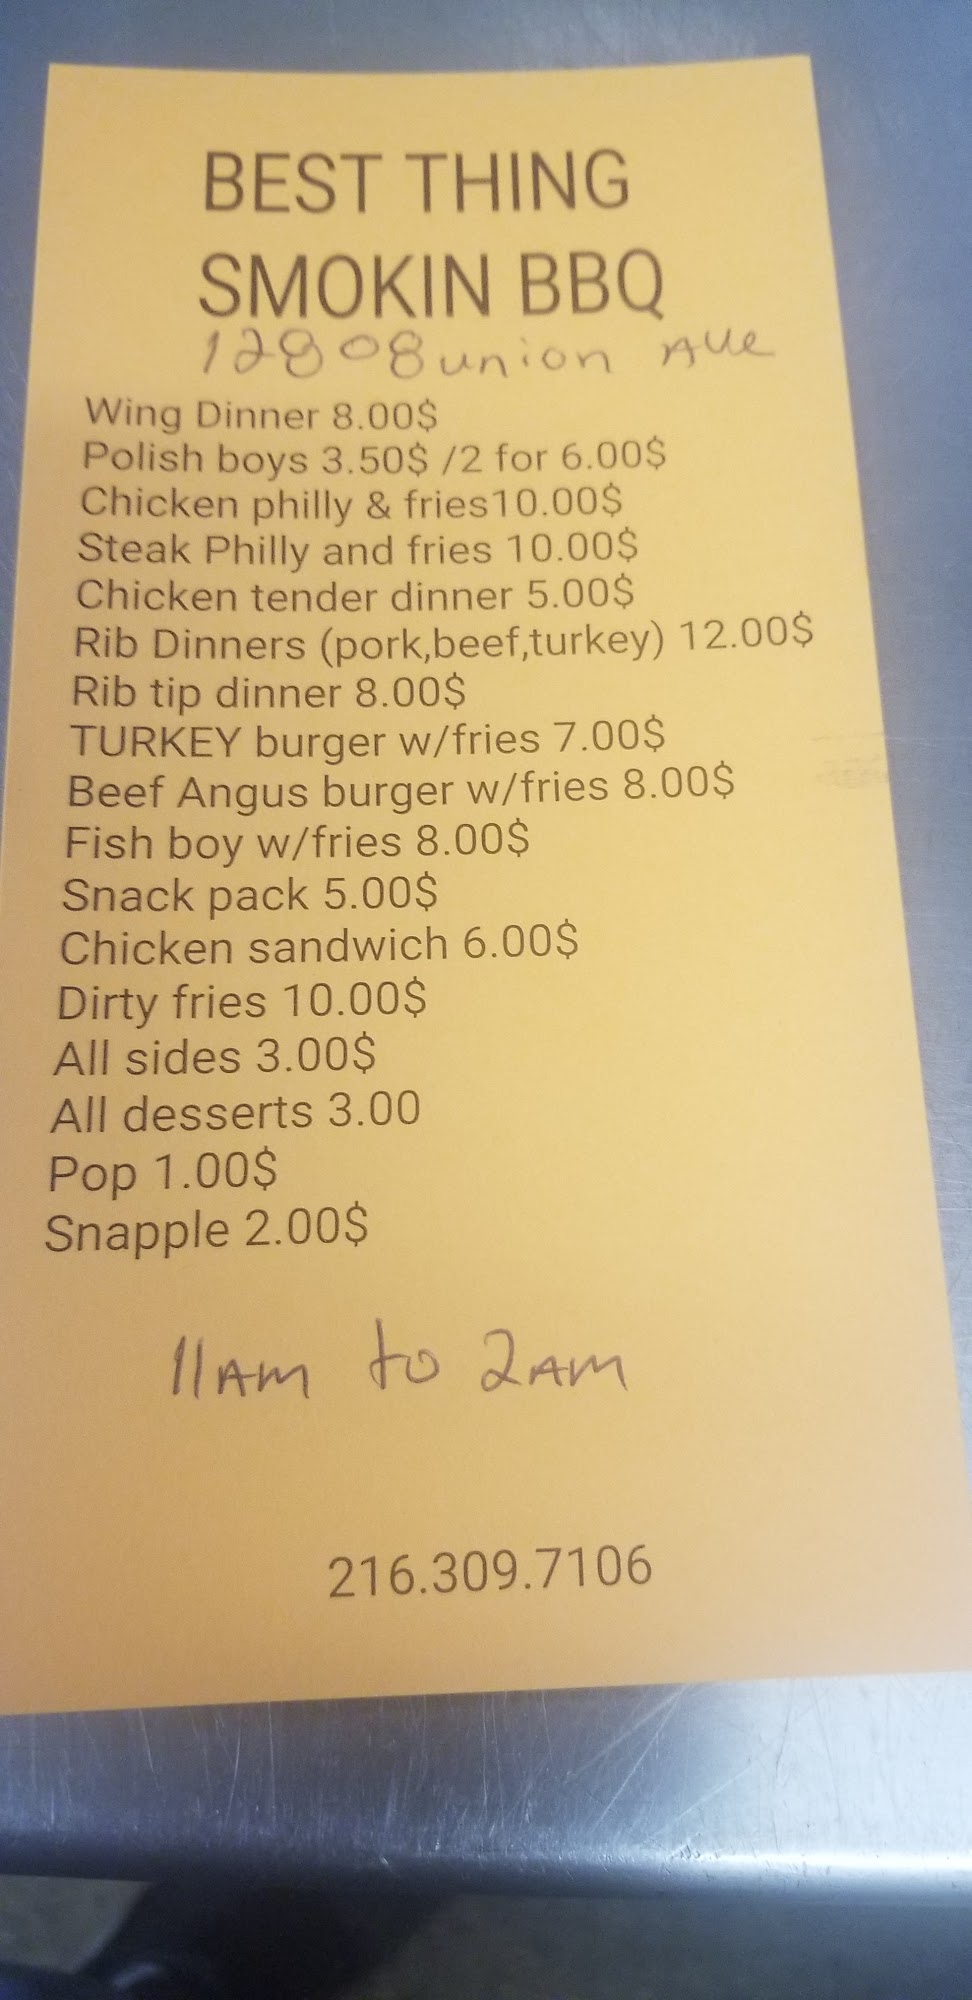 BEST THING
SMOKIN BBQ
12808 union Ave
Wing Dinner 8.00$
Polish boys 3.50$ /2 for 6.00$
Chicken philly & fries10.00$
Steak Philly and fries 10.00$
Chicken tender dinner 5.00$
Rib Dinners (pork,beef,turkey) 12.00$
Rib tip dinner 8.00$
TURKEY burger w/fries 7.00$
Beef Angus burger w/fries 8.00$
Fish boy w/fries 8.00$
Snack pack 5.00$
Chicken sandwich 6.00$
Dirty fries 10.00$
All sides 3.00$
All desserts 3.00
Pop 1.00$
Snapple 2.00$
11AM to 2AM
216.309.7106